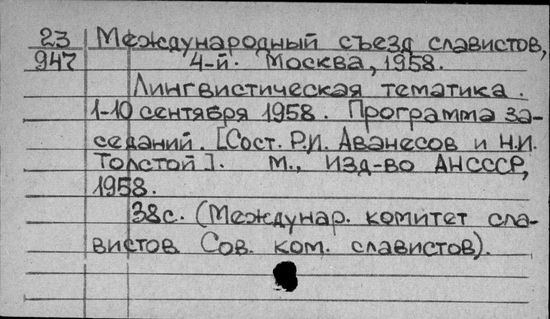 23 Международный съезд славистов,
947 4-й. Москва, 1958.
Лингвистическая тематика.
1-10 сентября 1958. Программа за-
седаний. [Сост. Р.И. Аванесов и Н.И.
Толстой]. М., Изд-во АНСССР,
1958.
38с. (Междунар. комитет сла-
вистов. Сов. ком. славистов).